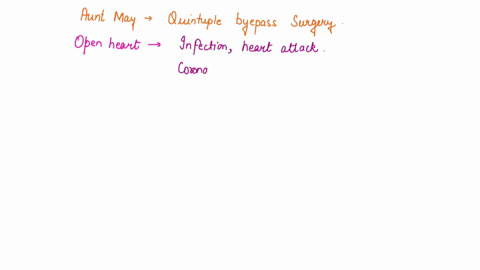 Aunt May → Quintuple byepass Surgery.
Open heart → Infection, heart attack.
Corono